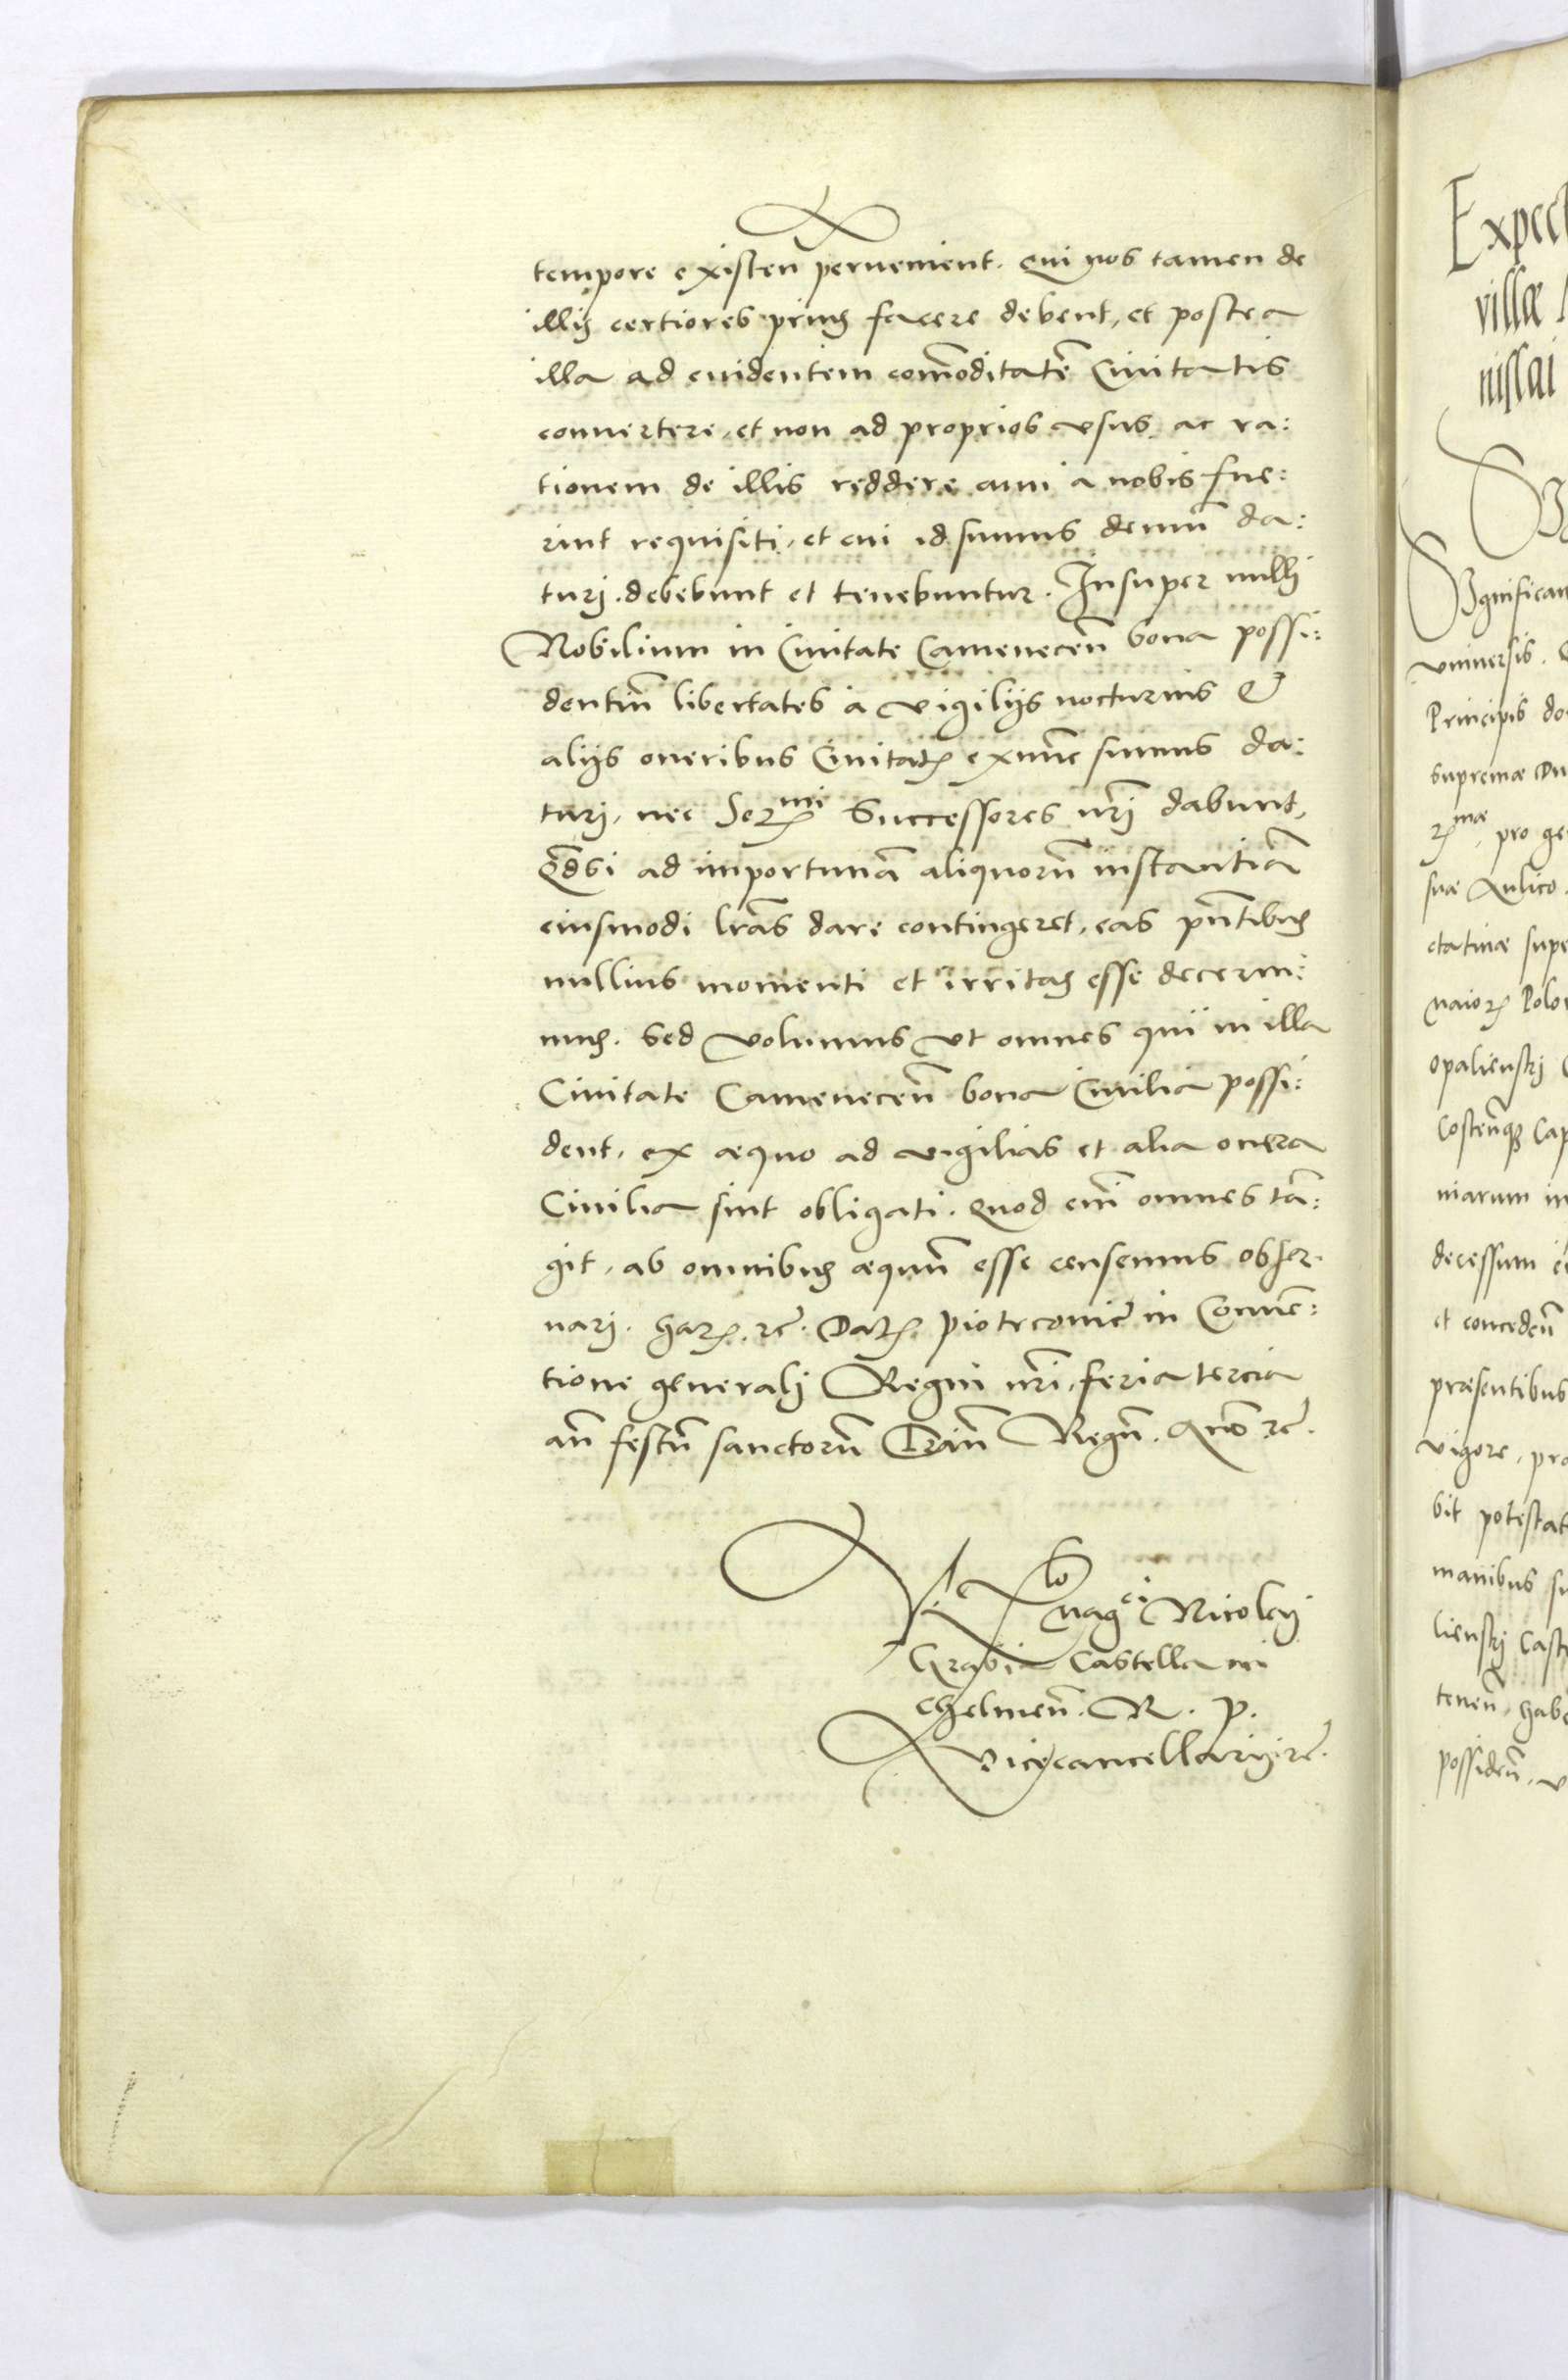 tempore existeñ peruenient. Qui nos tamen de
illis certiores prius facere debent, et postea
illa ad euidentem com̃oditatẽ Ciuitatis
conuertere, et non ad proprios vsus, ac ra:
tionem de illis reddere cum a nobis fue:
rint requisiti, et cui id sumus demũ da:
turi. debebunt et tenebuntur. Insuper nulli
Nobilium in Ciuitate Cameneceñ bona possi:
dentiũ libertates a vigilijs nocturnis &
alijs oneribus Ciuitatꝭ exnunc sumus da:
turi, nec Serᵐⁱ Successores nr̃i dabunt,
Qd̃si ad importunã aliquorũ instantiã
eiusmodi lr̃as dare contingeret, eas pñtibus
nullius momenti et irritas esse decerni:
mus. Sed volumus vt omnes qui in illa
Ciuitate Cameneceñ bona Ciuilia possi:
dent, ex æquo ad vigilias et alia onera
Ciuilia sint obligati. Quod em̃ omnes tã:
git, ab omnibus æquũ esse censemus obser
uari. Harꝝ. rc̃. Datꝭ Piotrcouiẽ in Conuẽ:
tione generalj Regni nr̃i, feria tercia
añ festũ sanctorũ Triũ Regũ. Anno rc̃.
Rlõ Mag^ci Nicolaj
Grabia Castellani
Chelmeñ. R. P.
Vicecancellarij. rc̃.
Expect
villæ
nissai
Significam
vniuersis.
Principis do
Supremæ Du
pro ge
suæ Aulico.
ctatiuæ supe
naiorꝝ Polo
Opalienskj
Costeñqꝫ Cap
niarum in
decessum
et concedeñ
præsentibus
vigore, pro
bit potestat
manibus su
lienskj Caste
teneñ, habe
possideñ, v